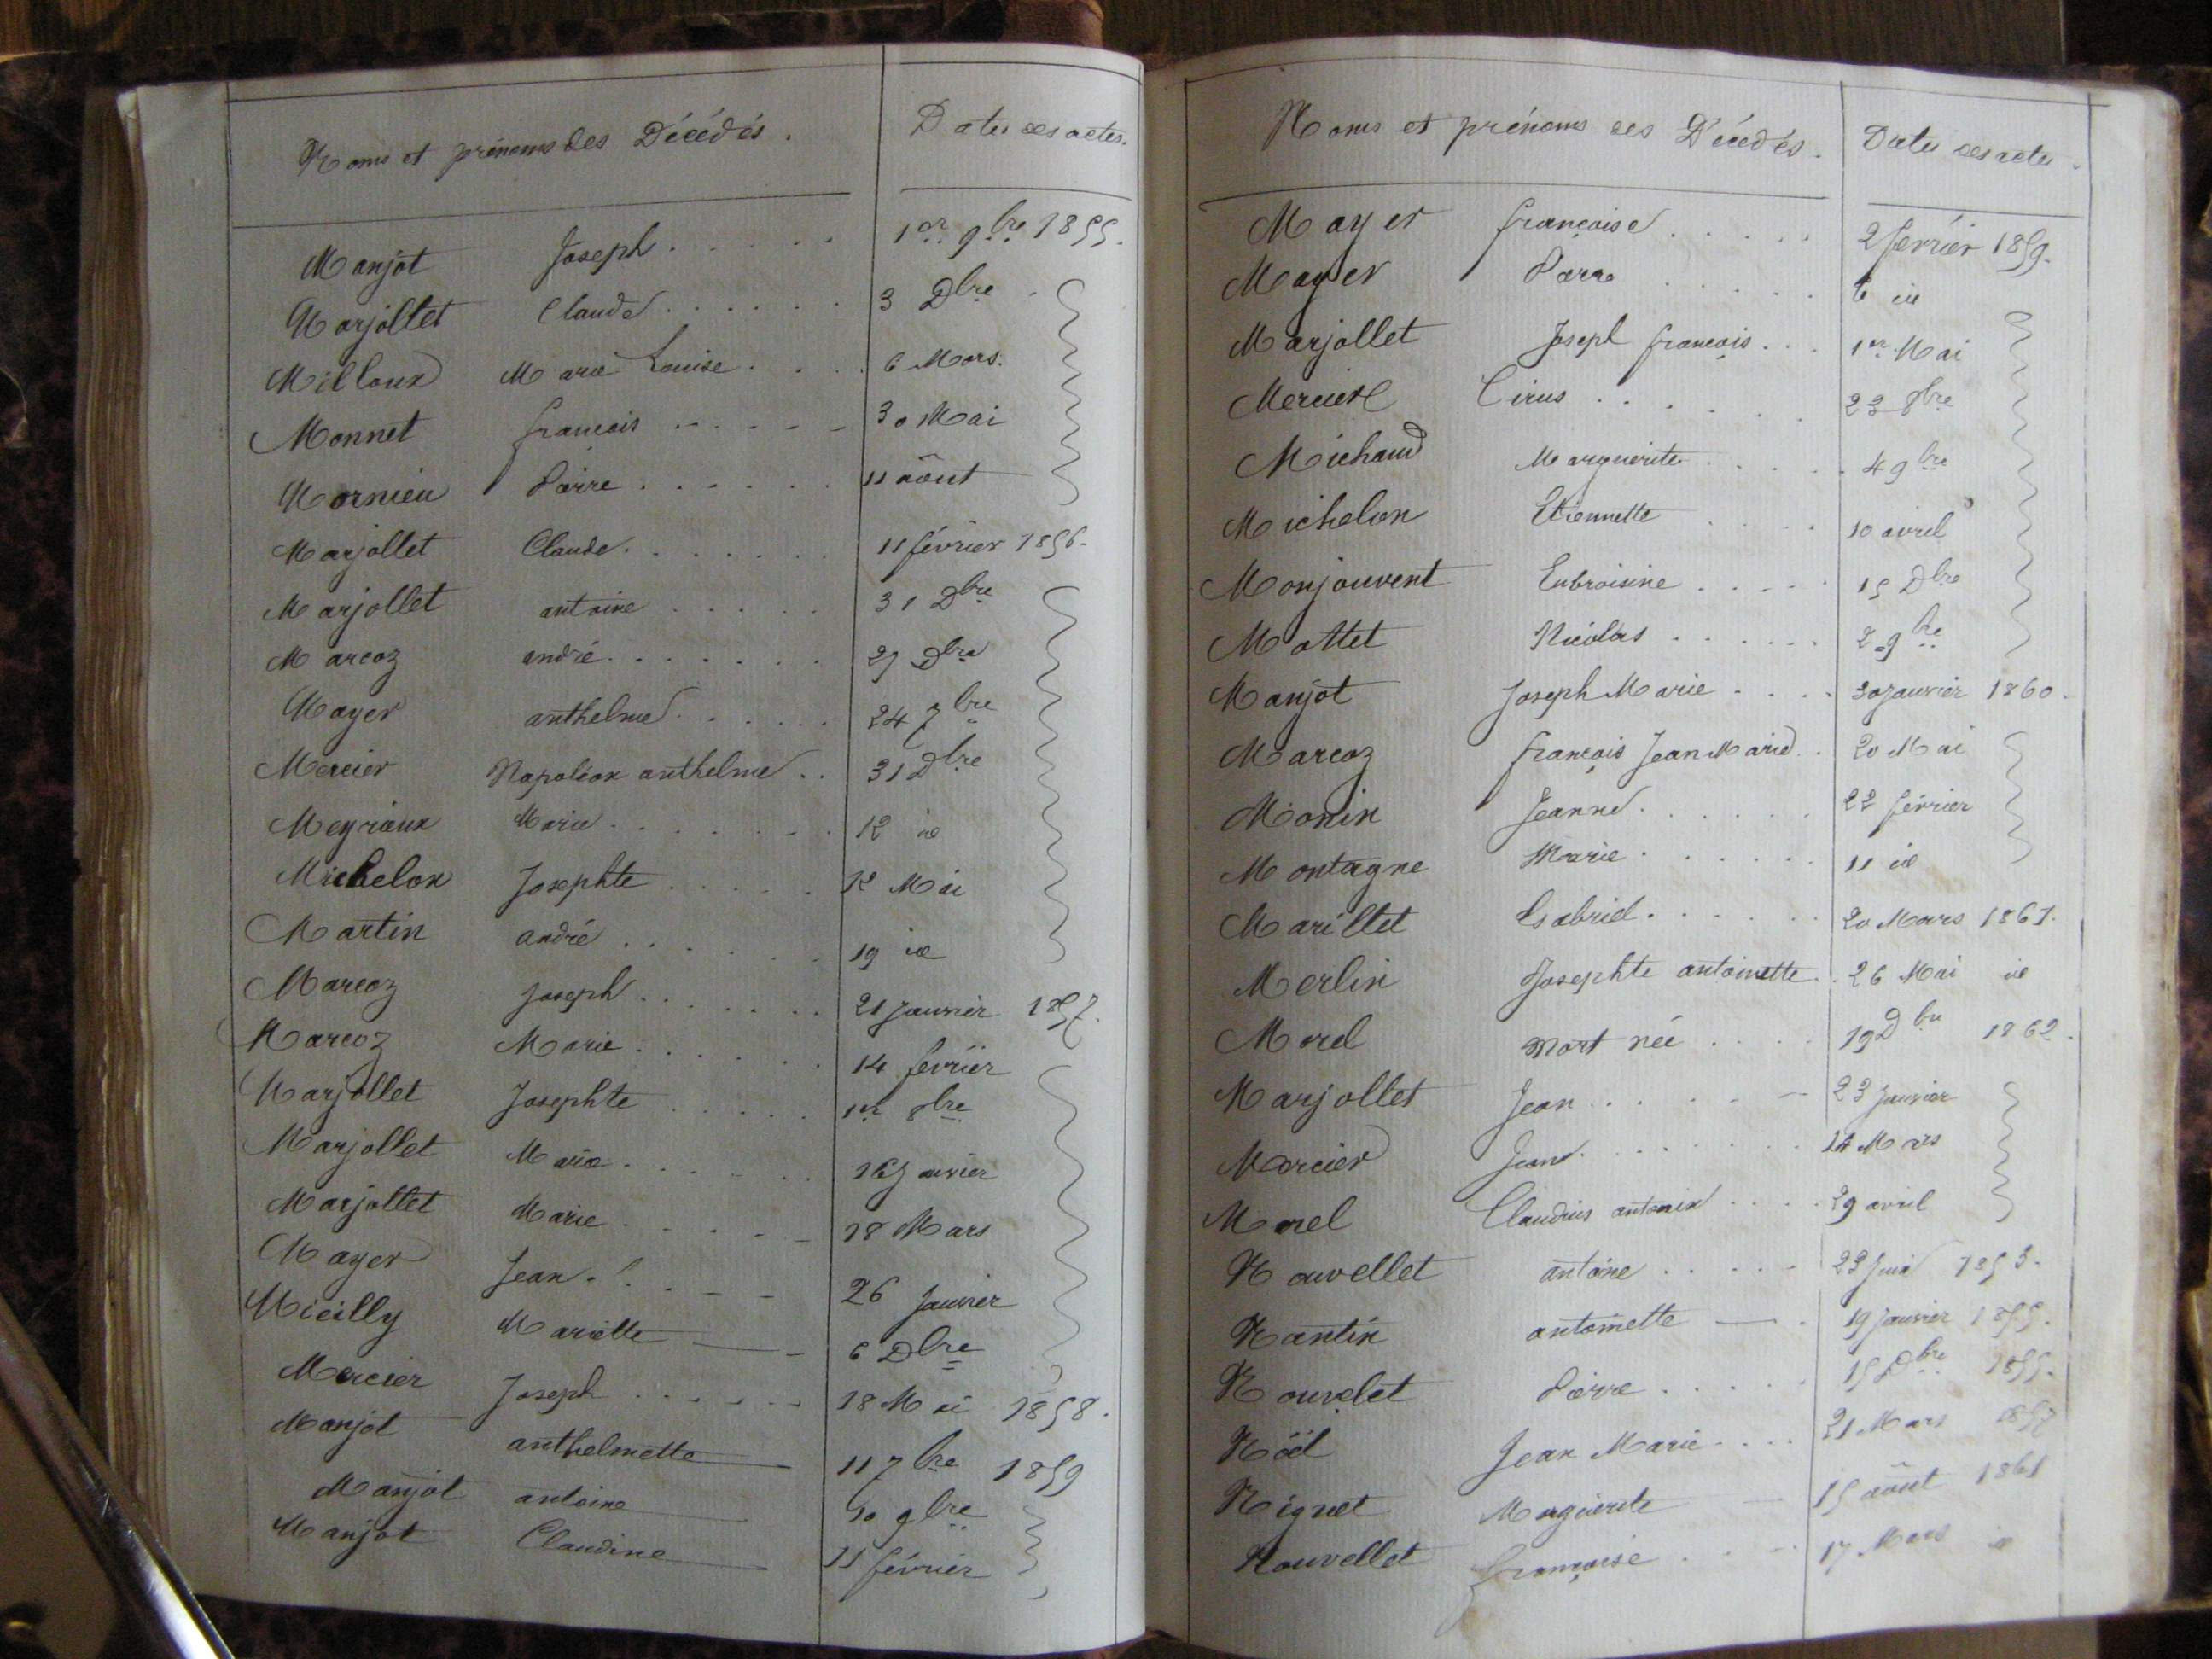 Noms et prénoms des Décédés. Dates des actes.
Manjot Joseph 1er 9bre 1855.
Marjollet Claude 3 Dbre
Milloux Marie Louise 6 Mars.
Monnet françois 30 Mai
Mornieu Pierre 11 août
Marjollet Claude 11 février 1856.
Marjollet antoine 31 Dbre
Marcoz andré 27 Dbre
Mayer anthelme 24 7bre
Mercier Napoléon anthelme 31 Dbre
Meyrieux Marie 12 id
Michelon Josephte 12 Mai
Martin andré 19 id
Marcoz Joseph 21 janvier 1857.
Marcoz Marie 14 février
Marjollet Josephte 1er 8bre
Marjollet Marie 16 janvier
Marjollet Marie 18 Mars
Mayer Jean 26 janvier
Mieilly Mariette 6 Dbre
Mercier Joseph 18 Mai 1858.
Manjot anthelmette 11 7bre 1859
Manjot antoine 30 9bre
Manjot Claudine 11 février
Noms et prénoms des Décédés. Dates des actes.
Mayer françoise 2 février 1859.
Mayer Pierre 6 id
Marjollet Joseph françois 1er Mai
Mercier Cirus 22 8bre
Michaud Marguerite 4 9bre
Michelon Etiennette 10 avril
Monjouvent Eubroisine 15 Dbre
Mottet Nicolas 2 9bre
Manjot Joseph Marie 30 janvier 1860.
Marcoz françois Jean Marie 20 Mai
Monin Jeanne 22 février
Montagne Marie 11 id
Marillet Gabriel 20 Mars 1861.
Merlin Josephte antoinette 26 Mai id
Morel mort née 19 Dbre 1862.
Marjollet Jean 23 janvier
Mercier Jean 14 Mars
Morel Claudius antonin 29 avril
Nouvellet antoine 22 juin 1853.
Nantin antoinette 19 janvier 1855.
Nouvelet Pierre 15 Dbre 1855.
Nöël Jean Marie 21 Mars 1857
Nignet Marguerite 15 août 1861
Nouvellet françoise 17 Mars id